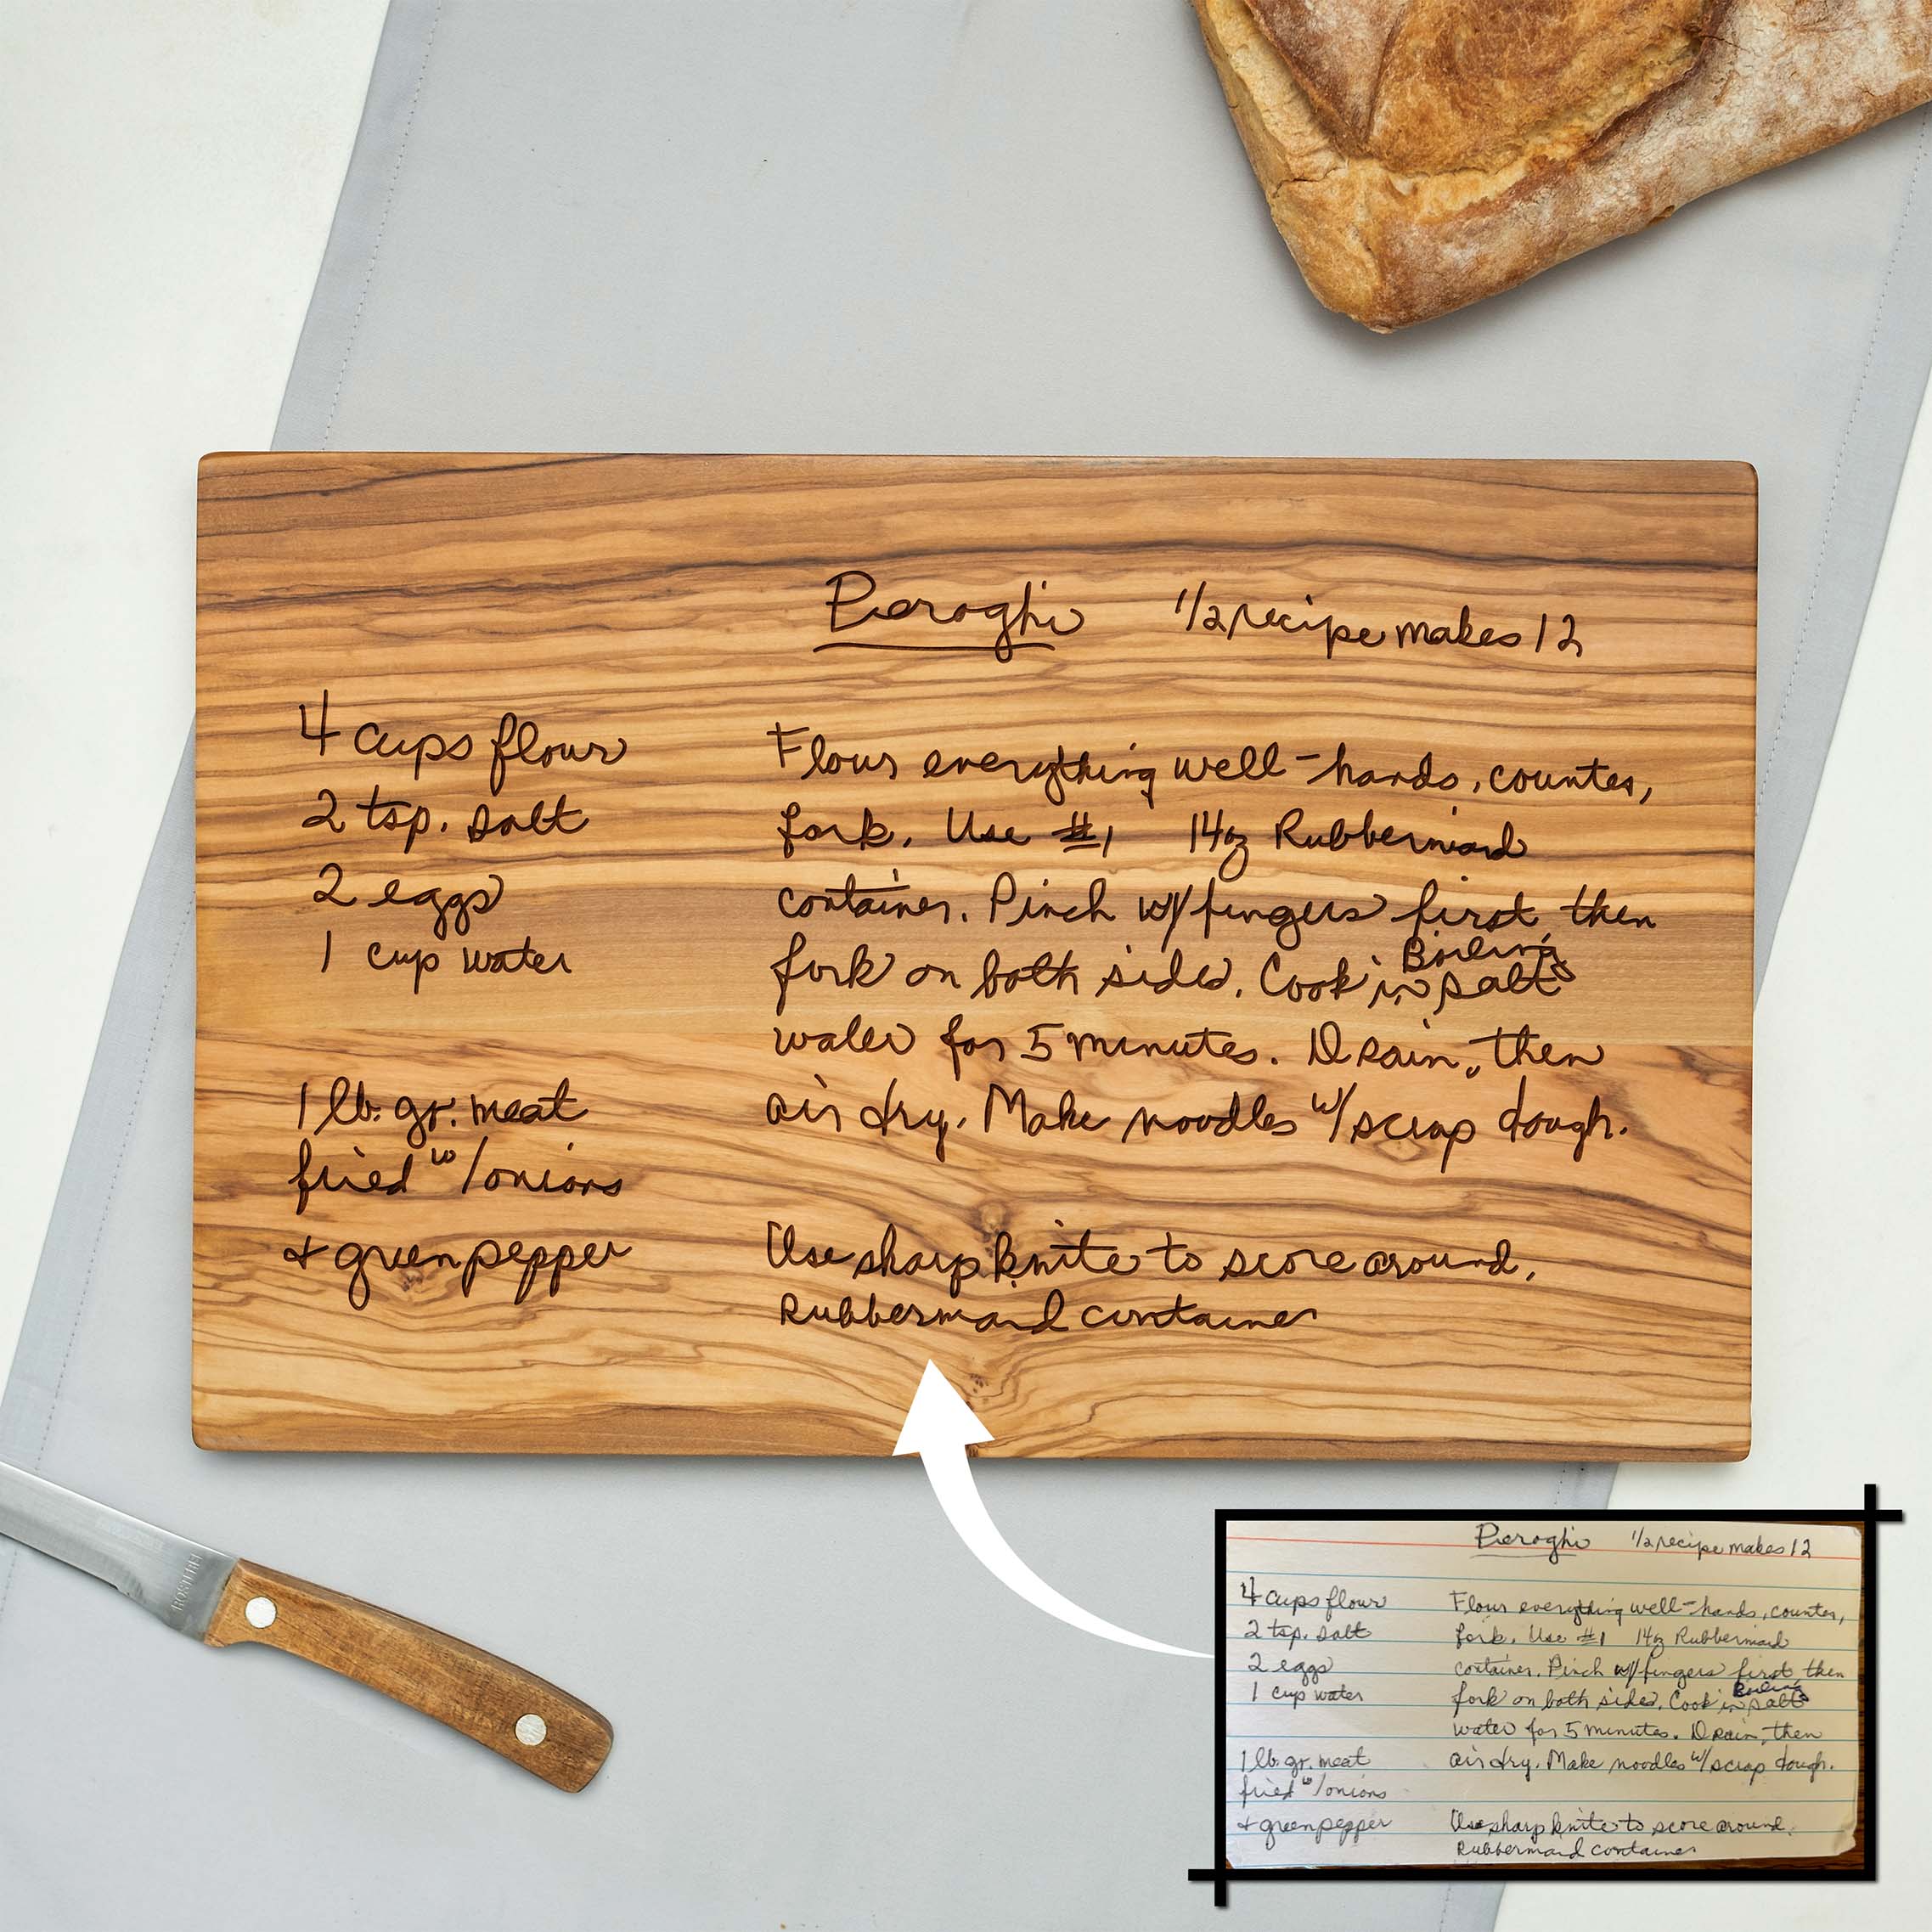 Pieroghi 1/2 recipe makes 12
4 cups flour
2 tsp. salt
2 eggs
1 cup water
1 lb. gr. meat
fried w/onions
+ green pepper
Flour everything well - hands, counter,
fork. Use #1 14oz Rubbermaid
container. Pinch w/fingers first, then
fork on both sides. Cook in Boiling salt
water for 5 minutes. Drain, then
air dry. Make noodles w/scrap dough.
Use sharp knife to score around.
Rubbermaid container
Pieroghi 1/2 recipe makes 12
4 cups flour
2 tsp. salt
2 eggs
1 cup water
1 lb. gr. meat
fried w/onions
+ green pepper
Flour everything well - hands, counter,
fork. Use #1 14oz Rubbermaid
container. Pinch w/fingers first then
fork on both sides. Cook in Boiling salt
water for 5 minutes. Drain, then
air dry. Make noodles w/scrap dough.
Use sharp knife to score around.
Rubbermaid container